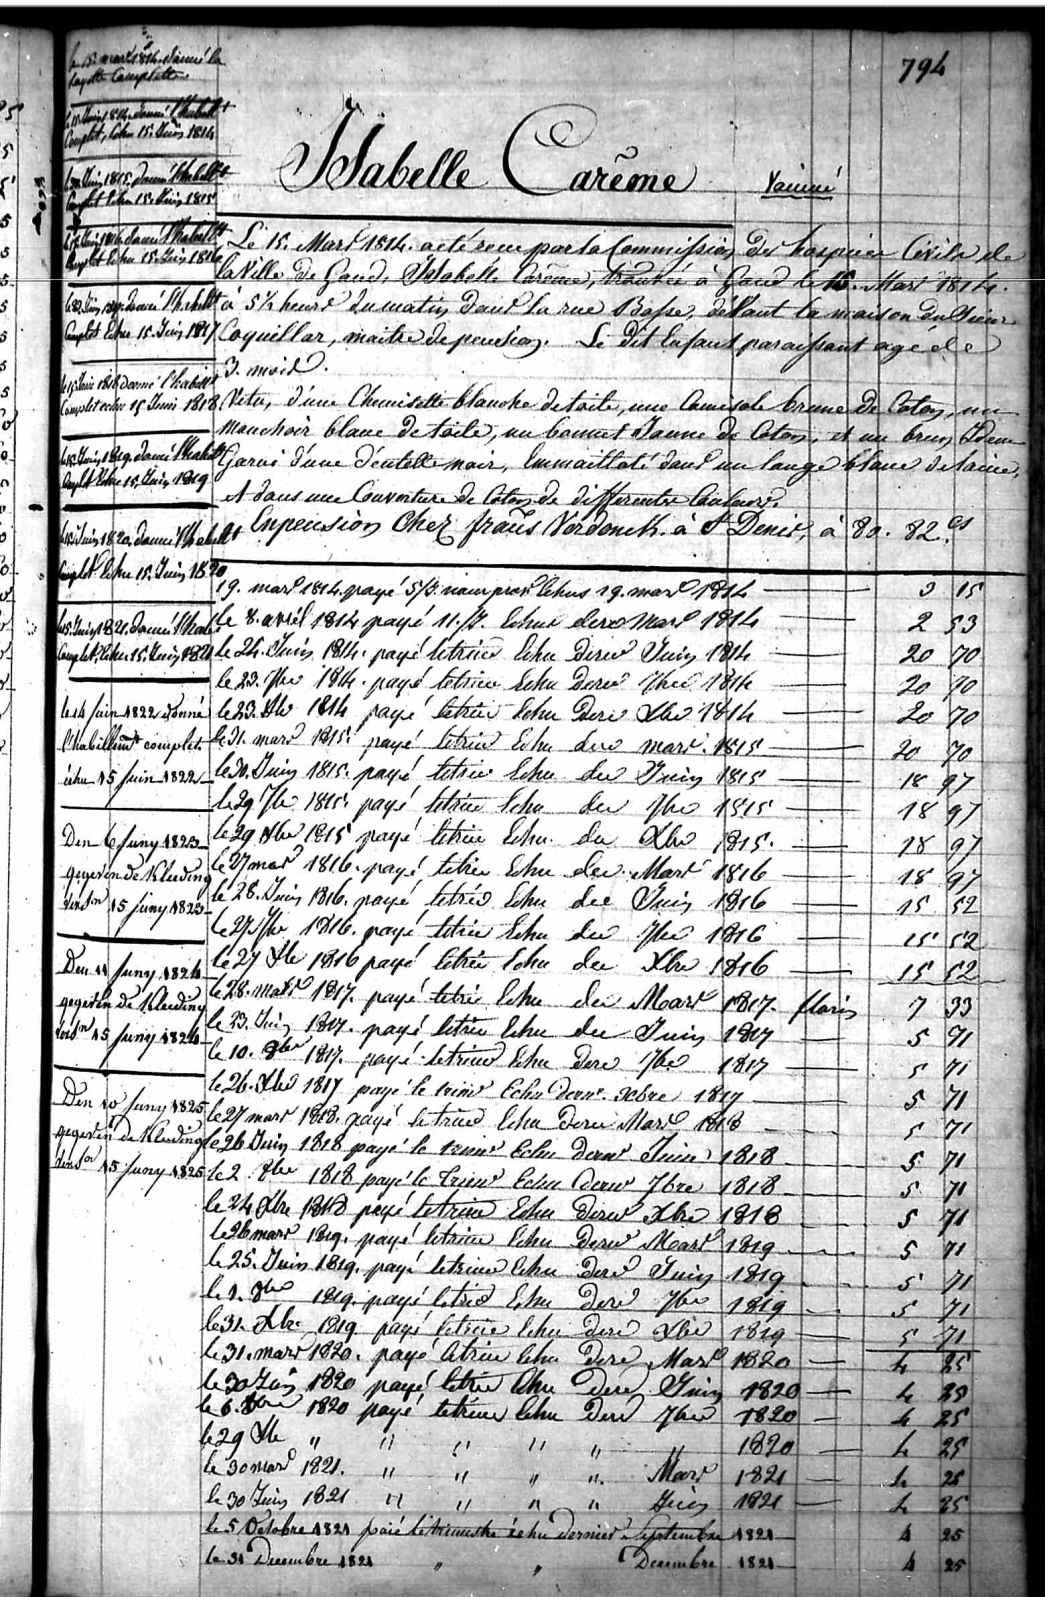 794
Isabelle Carême
Vacciné
Le 15. Mars 1814. a été recue par la Commission des hospices Civils de
la Ville de Gand, Isabelle Carême, trouvée à Gand le 15. Mars 1814.
à 5½ heures du matin dans la rue Basse, dévant la maison du Sieur
Coquillar, maitre de pension. Le dit Enfant paraissant agé de
3. mois.
Vetu, d'une Chemisette blanche de toile, une Camisole brune de Coton, un
mouchoir blanc de toile, un bonnet Jaune de Coton, et un brun Idem
Garni d'une dentelle noir, Emmailloté dans un lange blanc de laine,
et dans une Couverture de Coton de differentes Couleurs.
En pension Chez frans Verdonck. à St Denis, à 80. 82. cs
le 15. mars 1814. donné la
layette Complette
le 11. Juin 1814. donné l'habillt
Complet, Echu 15. Juin 1814
Juin 1815. donné l'habillt
Complet Echu 15. Juin 1815
Juin 1816. donné l'habillt
Complet Echu 15. Juin 1816
Juin 1817. donné l'habillt
Complet Echu 15. Juin 1817
le 15 Juin 1818 donné l'habillt
Complet echu 15 Juin 1818
Juin 1819. donné l'habillt
Complet Echu 15. Juin 1819
Juin 1820. donné l'habillt
Complet Echu 15. Juin 1820
15. Juin 1821. donné l'habi
Complet, Echu 15. Juin 1821
le 14 Juin 1822 donné
l'habillemt complet
échu 15 Juin 1822
Den 6 Juny 1823
gegeven de Kleeding
15 Juny 1823
Den 11 Juny 1824
gegeven de Kleeding
15 Juny 1824
Den 10 Juny 1825
gegeven de Kleeding
15 Juny 1825
19. mars 1814. payé 5/. Echus 19. mars 1814 3 15
le 8. avril 1814 payé 11./. Echus der mars 1814 2 53
le 24. Juin 1814. payé le trim Echu der Juin 1814 20 70
le 23. 7bre 1814. payé le trim Echu der 7bre 1814 20 70
le 23. Xbre 1814 payé le trim Echu der Xbre 1814 20 70
le 31. mars 1815. payé le trim Echu der mars. 1815 20 70
le 30. Juin 1815. payé le trim Echu der Juin 1815 18 97
le 29 7bre 1815. payé le trim Echu der 7bre 1815 18 97
le 29 Xbre 1815 payé le trim Echu der Xbre 1815. 18 97
le 27 mars 1816. payé le trim Echu der Mars 1816 18 97
le 28. Juin 1816. payé le trim Echu der Juin 1816 15 52
le 27 7bre 1816. payé le trim Echu der 7bre 1816 15 52
le 27 Xbre 1816 payé le trim Echu der Xbre 1816 15 52
le 28. mars 1817. payé le trim Echu der Mars 1817. florins 7 33
le 23. Juin 1817. payé le trim Echu der Juin 1817 5 91
le 10. 8bre 1817. payé le trim Echu der 7bre 1817 5 71
le 26. Xbre 1817 payé le trim Echu dern. Xbre 1817 5 71
le 27 mars 1818. payé le trim Echu der Mars 1818 5 71
le 26 Juin 1818 payé le trim Echu dern Juin 1818 5 71
le 2. 8bre 1818 payé le trim Echu dern 7bre 1818 5 71
le 24 Xbre 1818 payé le trim Echu der Xbre 1818 5 71
le 26 mars 1819. payé le trim Echu der Mars 1819 5 71
le 25. Juin 1819. payé le trim Echu der Juin 1819 5 71
le 1. 8bre 1819. payé le trim Echu der 7bre 1819 5 71
le 31. Xbre 1819 payé le trim Echu der Xbre 1819 5 71
le 31. mars 1820. payé le trim Echu der Mars 1820 4 25
le 30 Juin 1820 payé le trim Echu der Juin 1820 4 25
le 6. 8bre 1820 payé le trim Echu der 7bre 1820 4 25
le 29 Xbre " " " " " " 1820 4 25
le 30 mars 1821. " " " " Mars 1821 4 25
le 30 Juin 1821 " " " " Juin 1821 4 25
le 5 Octobre 1821 paié le trimestre échu dernier Septembre 1821 4 25
le 31 Decembre 1821 " " Decembre 1821 4 25